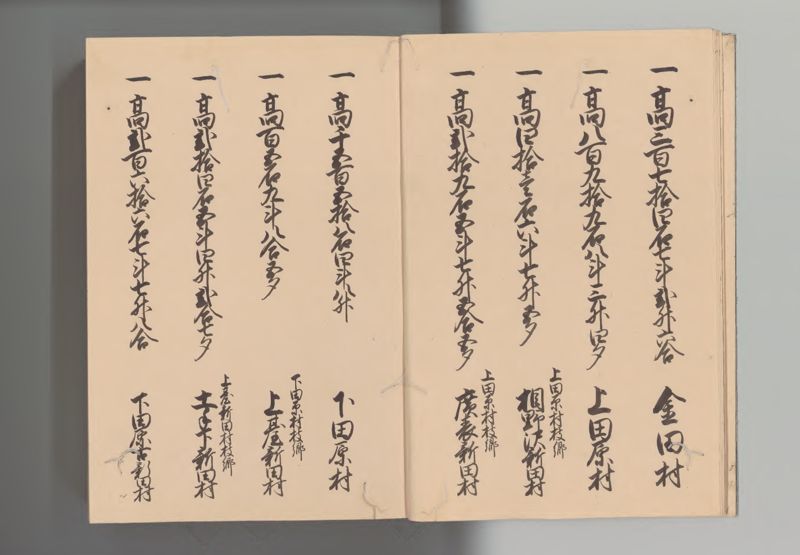 一 高三百七拾四石七斗弐升六合 金田村
一 高八百九拾九石八斗三升四夕 上田原村
上田原村枝郷
一 高四拾壱石六斗七升五夕 相野沢新田村
上田原村枝郷
一 高弐拾九石五斗七升五合五夕 廣表新田村
一 高千五百五拾八石四斗八升 下田原村
下田原村枝郷
一 高百五石九斗八合五夕 上基新田村
上基新田村枝郷
一 高弐拾四石五斗四升弐合七夕 新田村
一 高弐百六拾六石七斗七升八合 下田原古新田村